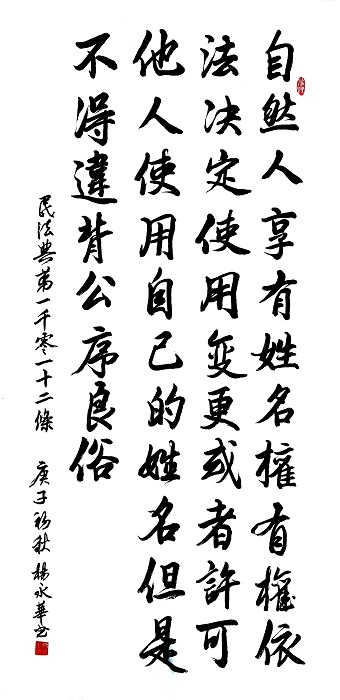 自然人享有姓名權有權依
法决定使用变更或者許可
他人使用自己的姓名但是
不得違背公序良俗
民法典第一千零一十二條 庚子初秋楊永華书